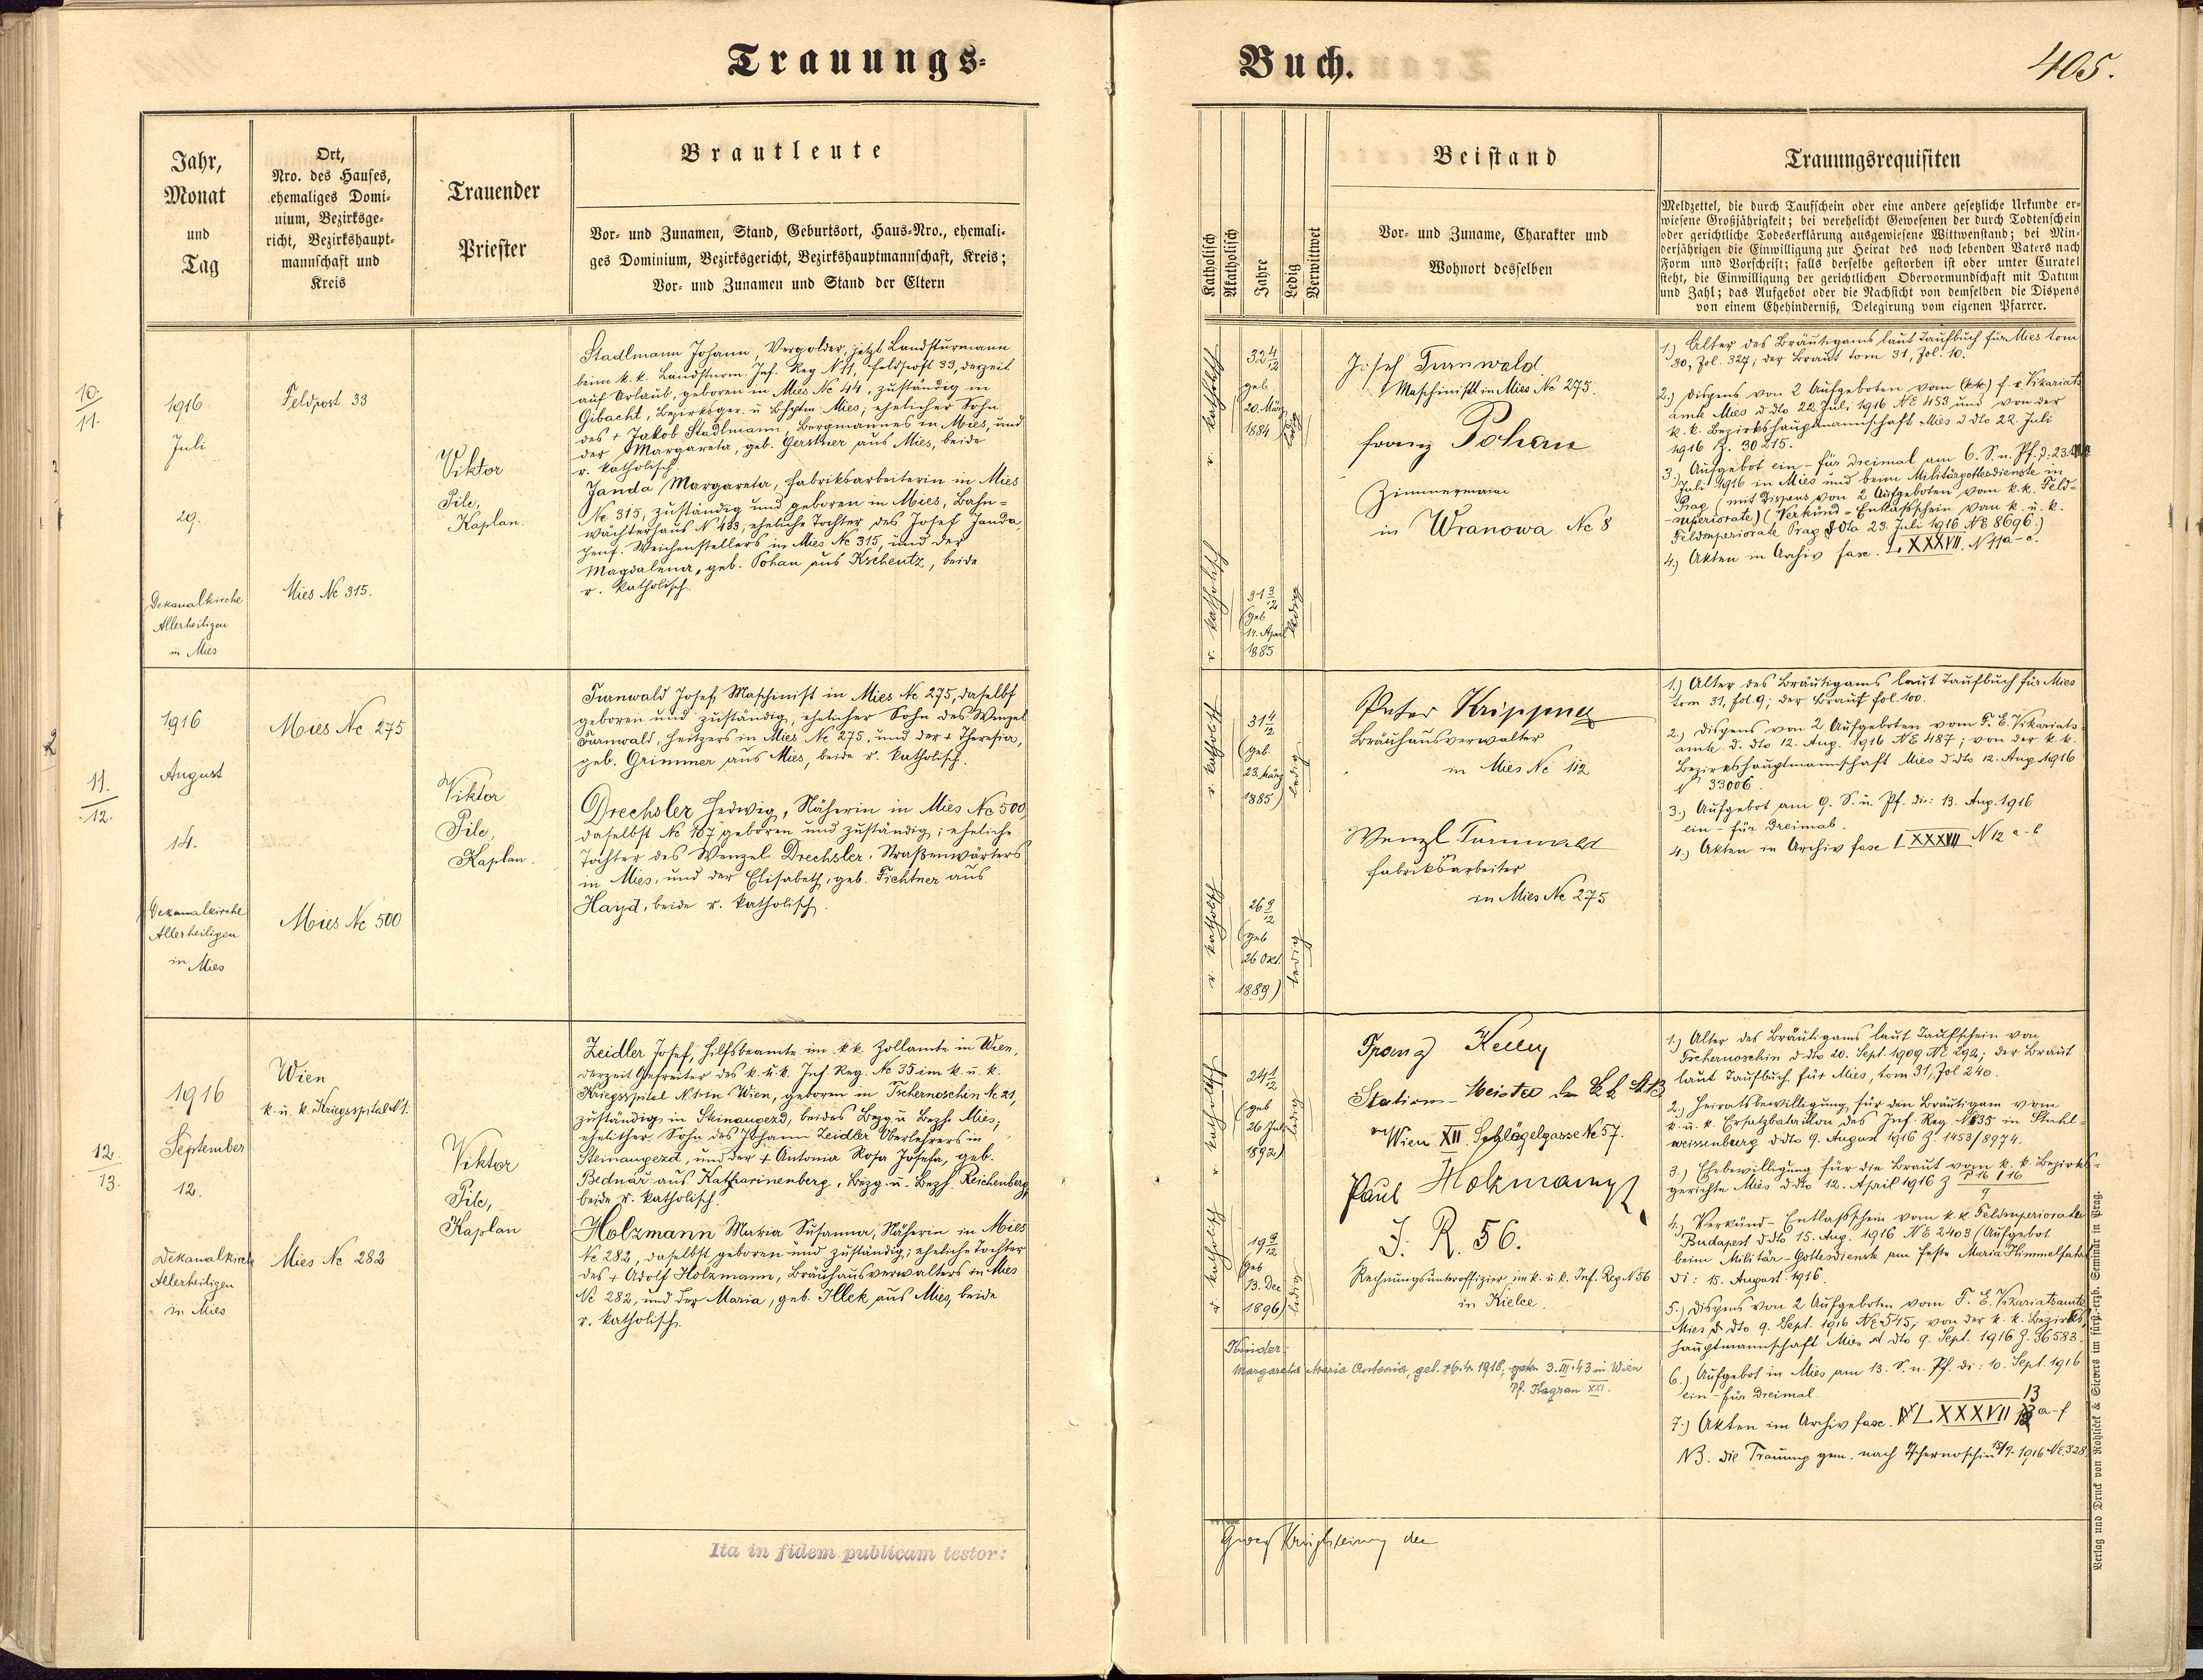 Trauungs-
Buch.
405.
Jahr,
Monat
und
Tag
Ort,
Nro. des Hauses,
ehemaliges Domi-
nium, Bezirksge-
richt, Bezirkshaupt-
mannschaft und
Kreis
Trauender
Priester
Brautleute
Vor- und Zunamen, Stand, Geburtsort, Haus-Nro., ehemali-
ges Dominium, Bezirksgericht, Bezirkshauptmannschaft, Kreis;
Vor- und Zunamen und Stand der Eltern
Katholisch
Akatholisch
Jahre
Ledig
Verwittwet
Beistand
Vor- und Zuname, Charakter und
Wohnort desselben
Trauungsrequisiten
Meldzettel, die durch Taufschein oder eine andere gesetzliche Urkunde er-
wiesene Großjährigkeit; bei verehelicht Gewesenen der durch Todtenschein
oder gerichtliche Todeserklärung ausgewiesene Wittwenstand; bei Min-
derjährigen die Einwilligung zur Heirat des noch lebenden Vaters nach
Form und Vorschrift; falls derselbe gestorben ist oder unter Curatel
steht, die Einwilligung der gerichtlichen Obervormundschaft mit Datum
und Zahl; das Aufgebot oder die Nachsicht von demselben die Dispens
von einem Ehehinderniß, Delegirung vom eigenen Pfarrer.
10.
11.
1916
Juli
29.
Dekanalkirche
Allerheiligen
in Mies
Feldpost 33
Mies Nc 315.
Viktor
Pilc,
Kaplan.
Stadlmann Johann, Vergolder, jetzt Landsturmann
beim k. k. Landsturm. Inf. Reg N 11, Feldpost 33, derzeit
auf Urlaub, geboren in Mies Nc 44, zuständig in
Gibacht, Bezirksger. u Bhptm. Mies; ehelicher Sohn
des + Jakob Stadlmann, Bergmannes in Mies, und
der Margareta, geb. Gerstner aus Mies, beide
r. katholisch.
Janda Margareta, Fabriksarbeiterin in Mies
Nc 315, zuständig und geboren in Mies, Bahn-
wächterhaus N 433, eheliche Tochter des Josef Janda,
penf. Weichenstellers in Mies Nc 315, und der
Magdalena, geb. Pohan aus Kscheutz, beide
r. katholisch.
r. katholisch
32 4/12
geb
20. März
1884
ledig
r. katholisch
31 3/12
(geb
14. April
1885
ledig
Josef Turnwald
Maschinist in Mies Nc 275.
Franz Pohan
Zimmermann
in Wranowa Nc 8
1.) Alter des Bräutigams laut Taufbuch für Mies tom
30, Fol. 327; der Braut tom 31, Fol. 10.
2.) Dispens von 2 Aufgeboten vom (kk) f. e Vikariats
amte Mies d dto 22. Juli 1916 NE 453 und von der
k. k. Bezirkshauptmannschaft Mies d dto 22. Juli
1916 Z. 30215.
3.) Aufgebot ein- für dreimal am 6. S. n. Pf. d: 23.
Juli 1916 in Mies und beim Militärgottesdienste in
Prag (mit Dispens von 2 Aufgeboten vom k.k. Feld-
superiorate) (Verkünd-Entlaßschein vom k. u. k.
Feldsuperiorate Prag d dto 23. Juli 1916 NE 8696.)
4.) Akten in Archiv fasc. L XXXVII. N 11 a-c.
11.
12.
1916
August
14.
Dekanalkirche
Allerheiligen
in Mies
Mies Nc 275
Mies Nc 500
Viktor
Pilc,
Kaplan.
Turnwald Josef, Maschinist in Mies Nc 275, daselbst
geboren und zuständig, ehelicher Sohn des Wenzel
Turnwald, Heitzers in Mies Nc 275, und der + Theresia,
geb. Grimmer aus Mies, beide r. katholisch.
Drechsler Hedwig, Näherin in Mies Nc 500,
daselbst Nc 167 geboren und zuständig; eheliche
Tochter des Wenzel Drechsler, Straßenwärters
in Mies, und der Elisabeth, geb. Fichtner aus
Hayd, beide r. katholisch.
r. katholisch
31 4/12
(geb.
23. März
1885)
ledig
r. katholisch
26 9/12
(geb
26 Okt.
1889)
ledig
Peter Krippner
Bräuhausverwalter
in Mies Nc 112
Wenzl Turnwald
Fabriksarbeiter
in Mies Nc 275
1.) Alter des Bräutigams laut Taufbuch für Mies
tom 31, fol. 9; der Braut fol. 100.
2.) Dispens von 2 Aufgeboten vom F. E. Vikariats-
amte d. dto 12. Aug. 1916 NE 487; von der k. k.
Bezirkshauptmannschaft Mies d dto 12. Aug 1916
N 33006.
3.) Aufgebot am 9. S. n. Pf. di: 13. Aug. 1916
ein- für Dreimal.
4.) Akten in Archiv fasc L XXXVII N 12 a-b
12.
13.
1916
September
12.
Dekanalkirche
Allerheiligen
in Mies
Wien
k. u. k. Kriegsspital N 1.
Mies Nc 282
Viktor
Pilc,
Kaplan
Zeidler Josef, Hilfsbeamte im k.k. Zollamte in Wien,
derzeit Gefreiter des k. u. k. Inf. Reg. Nc 35 im k. u. k.
Kriegsspital N. 1 in Wien, geboren in Tschernoschin Nc 21,
zuständig in Steinaugezd, beides Bezg u Bezh Mies,
ehelicher Sohn des Johann Zeidler Oberlehrers in
Steinaugezd, und der + Antonia Rosa Josefa, geb.
Bednař aus Katharinenberg, Bezg. u. Bezh. Reichenberg,
beide r. katholisch.
Holzmann Maria Susanna, Näherin in Mies
Nc 282, daselbst geboren und zuständig; eheliche Tochter
des + Adolf Holzmann, Bräuhausverwalters in Mies
Nc 282, und der Maria, geb. Illek aus Mies, beide
r. katholisch.
r. katholisch
24 1/12
(geb
26 Juli
1892)
ledig
r. katholisch
19 9/12
geb
13. Dec
1896)
ledig
Station-Meister
Wien XII. Schlögelgasse Nc 57.
Paul Holzmann
J. R. 56.
Rechnungsunteroffizier im k. u. k. Inf. Reg. N 56
in Kielce.
Kinder:
Margareta Maria Antonia, geb. 1918, 3. III. 43 in Wien
Pf. Kagran XXI.
1.) Alter des Bräutigams laut Taufschein von
Tschernoschin d dto 20. Sept. 1909 NE 292; der Braut
laut Taufbuch für Mies, tom 31, Fol 240.
2.) Heiratsbewilligung für den Bräutigam vom
k. u. k. Ersatzbatallon des Inf. Reg. N 35 in Stuhl-
weissenburg d dto 9. August 1916 Z. 1453/8974.
3.) Ehebewilligung für die Braut vom k. k. Bezirks-
gerichte Mies d dto 12. April 1916 Z P 16/16
9
4.) Verkünd-Entlaßschein vom k.k. Feldsuperiorate
Budapest d dto 15. Aug. 1916 NE 2403 (Aufgebot
beim Militär-Gottesdienste am Feste Maria Himmelfahrt
di: 15. August 1916.
5.) Dispens von 2 Aufgeboten vom F. E. Vikariatsamte
Mies d dto 9. Sept. 1916 NE 545, von der k. k. Bezirks-
hauptmannschaft Mies d dto 9. Sept. 1916 Z. 36583.
6.) Aufgebot in Mies am 13. S. n. Pf. di: 10. Sept. 1916
ein- für Dreimal.
7.) Akten im Archiv fasc. L XXXVII 13 a-f
NB. die Trauung gem. nach Tschernoschin 13/9. 1916 NE. 328
Ita in fidem publicam testor:
Verlag und Druck von Rohlíček & Sievers im fürst.-erzb. Seminär in Prag.